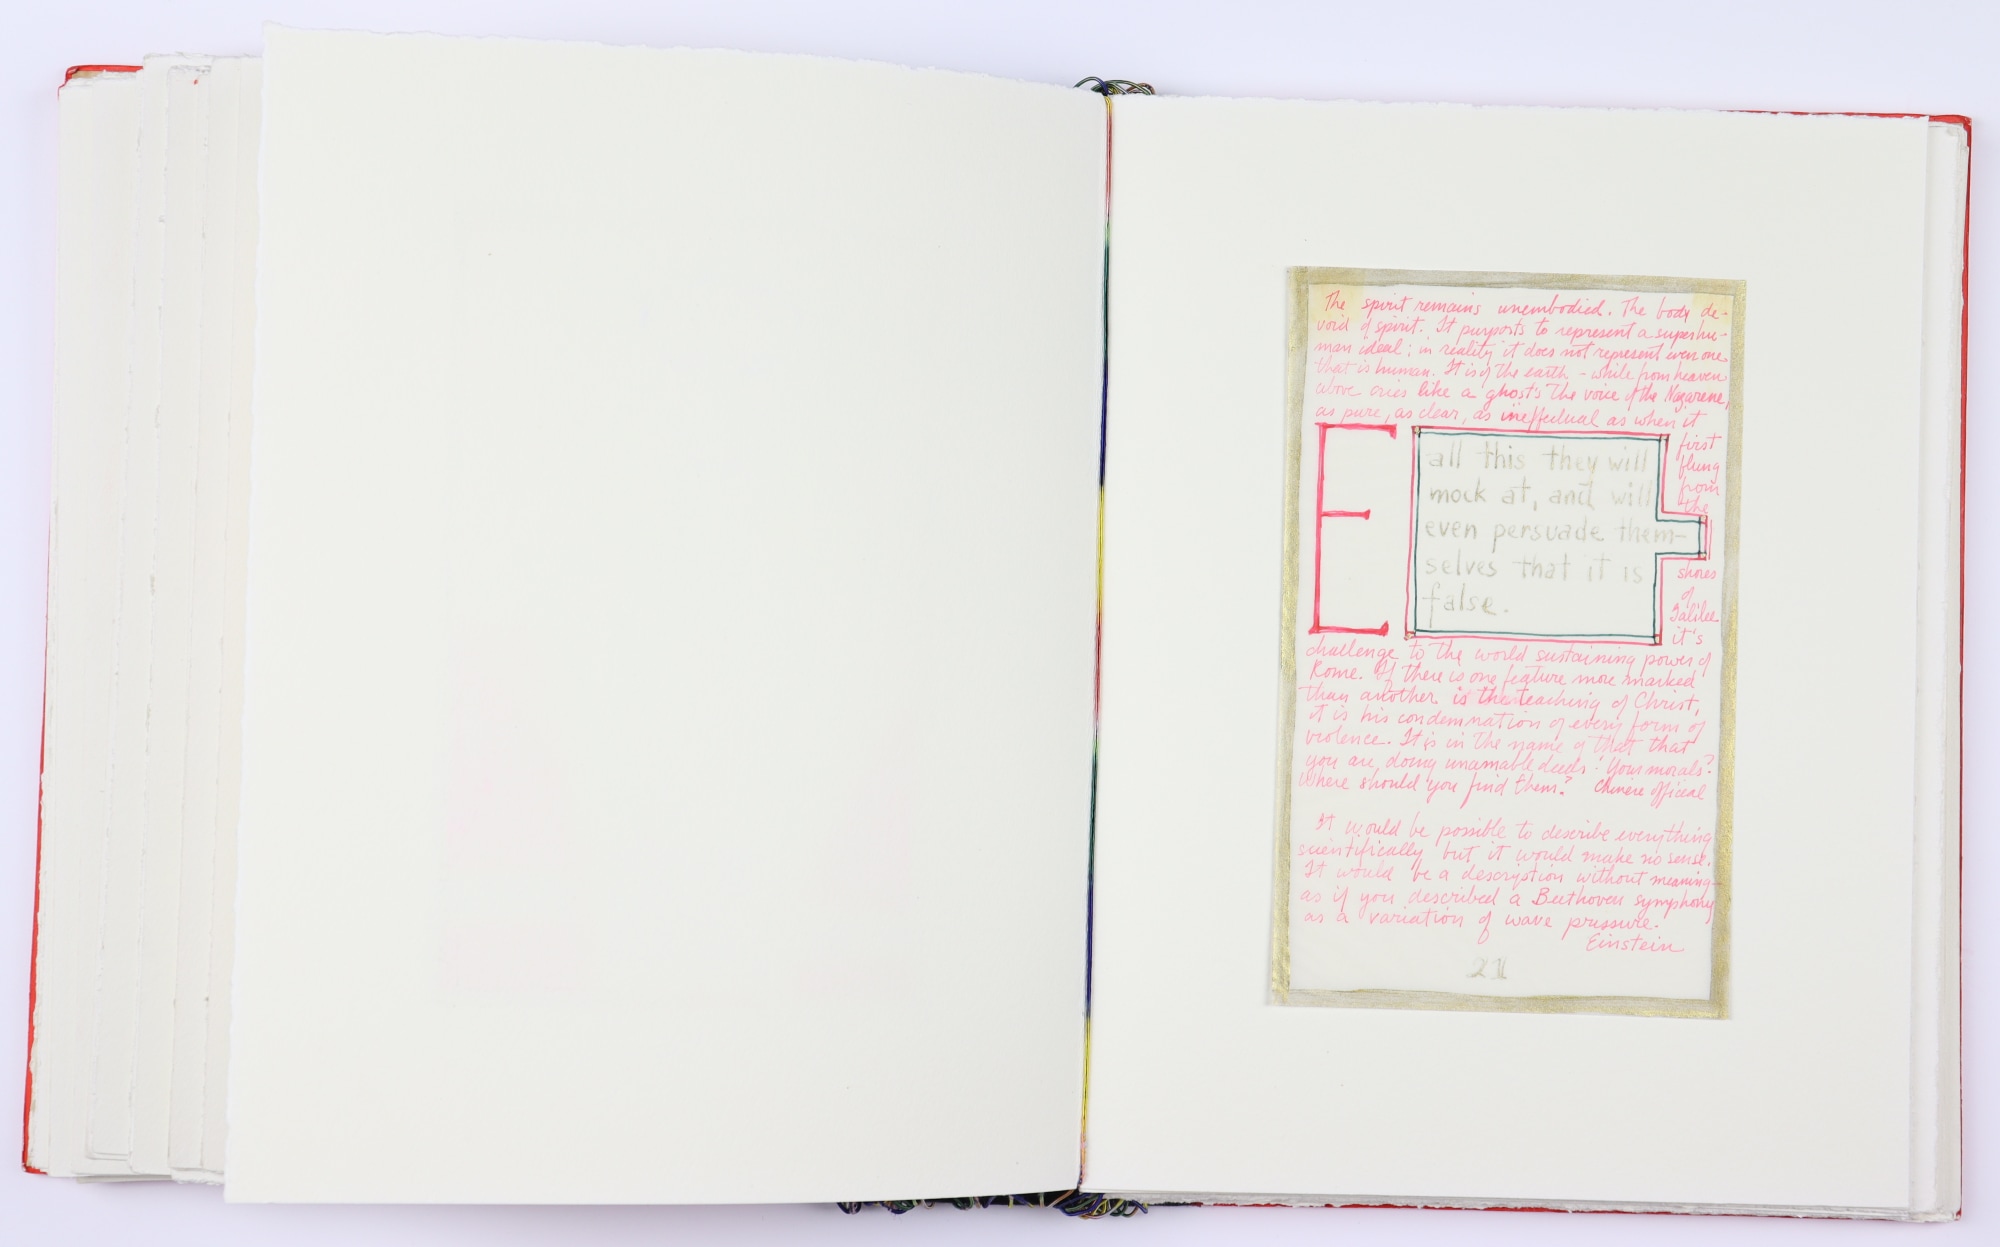 The spirit remains unembodied. The body de-
void of spirit. It purports to represent a superhu-
man ideal; in reality it does not represent even one
that is human. It is of the earth - while from heaven
above cries like a ghost's the voice of the Nazarene,
as pure, as clear, as ineffectual as when it
first
flung
from
the
shores
of
Galilee
it's
E
all this they will
mock at, and will
even persuade them-
selves that it is
false.
challenge to the world sustaining power of
Rome. If there is one feature more marked
than another is the teaching of Christ,
it is his condemnation of every form of
violence. It is in the name of that that
you are doing unamable deeds! Your morals?
Where should you find them? Chinese official
It would be possible to describe everything
scientifically but it would make no sense.
It would be a description without meaning-
as if you described a Beethoven symphony
as a variation of wave pressure.
Einstein
21